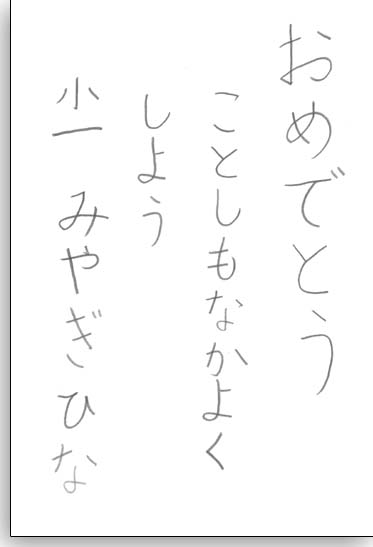 おめでとう
ことしもなかよく
しよう
小一 みやぎひな